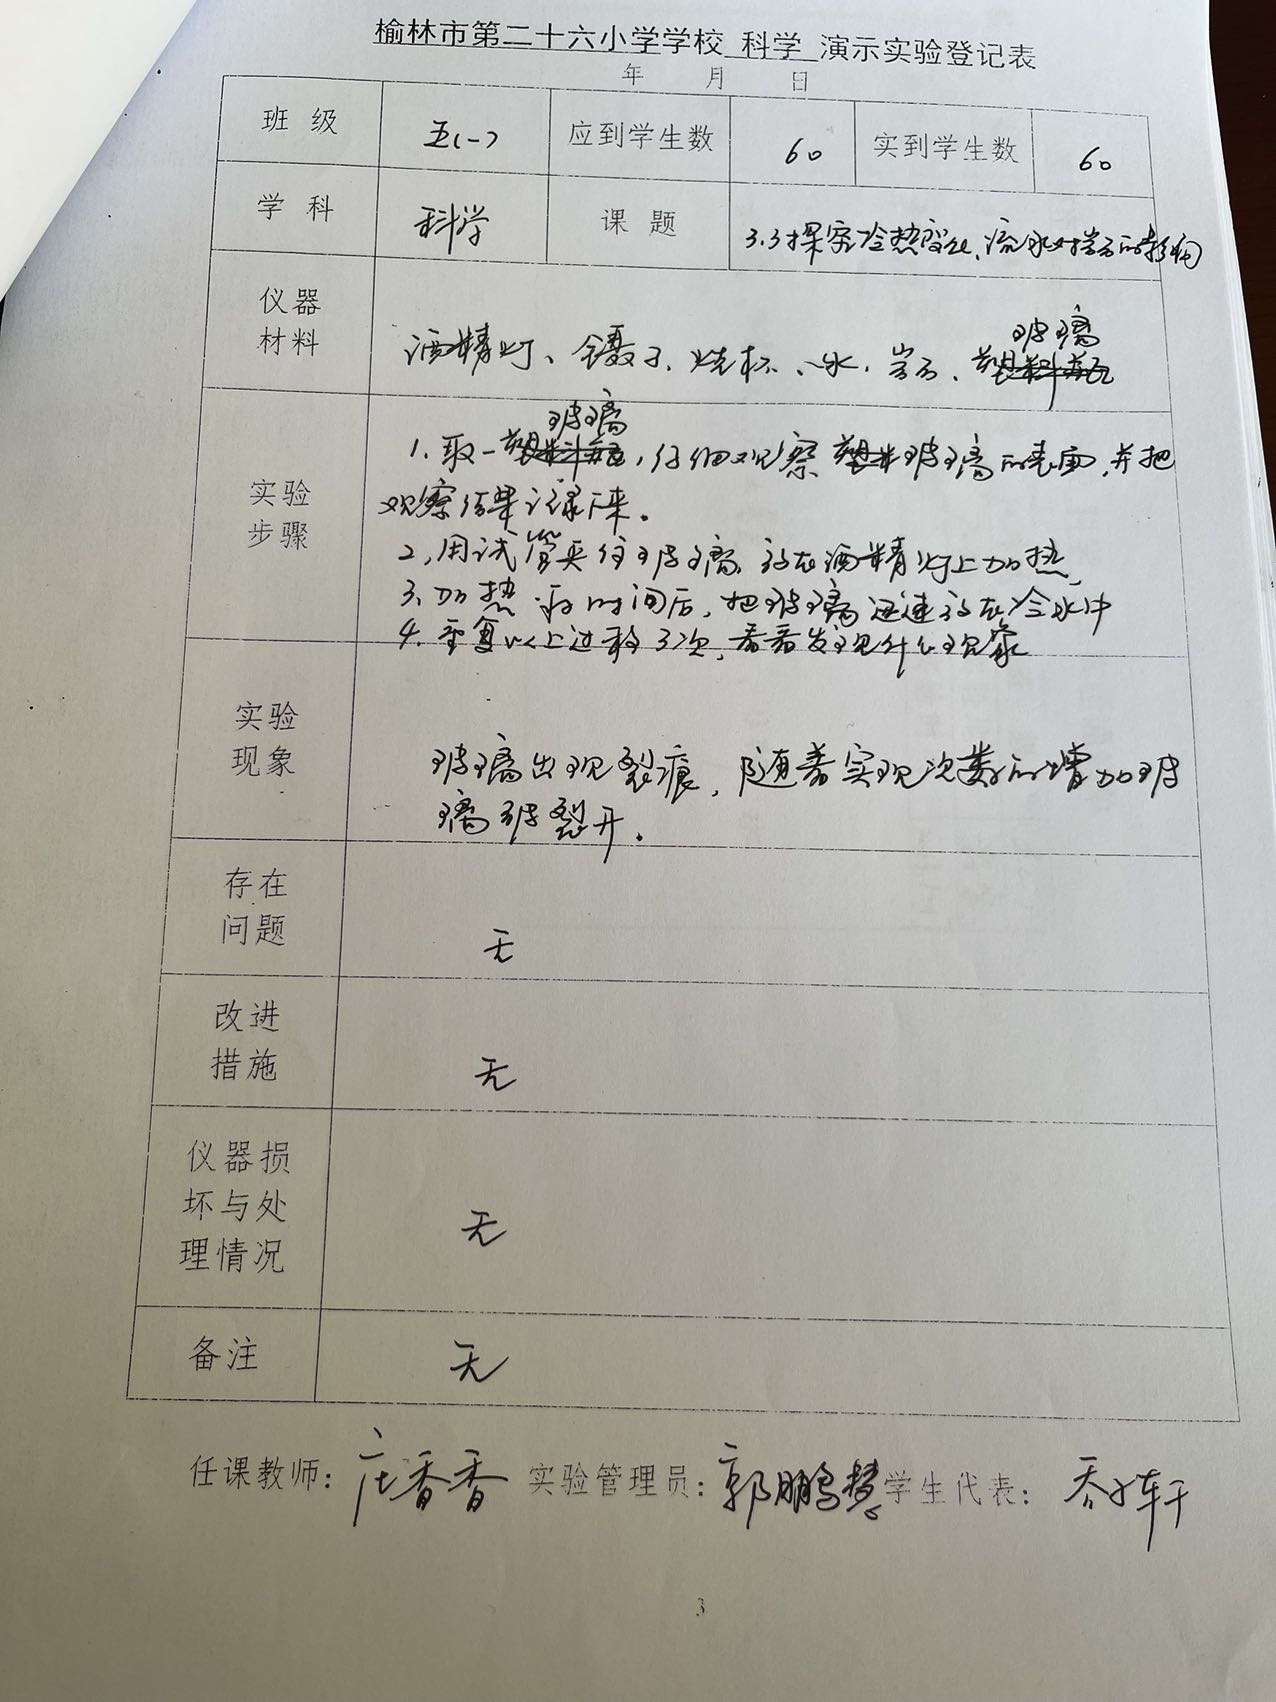 榆林市第二十六小学学校 科学 演示实验登记表
年 月 日
班级 五(一) 应到学生数 60 实到学生数 60
学科 科学 课题 3.3探究冷热变化、流水对岩石的影响
仪器
材料
玻璃
酒精灯、镊子、烧杯、水、岩石、塑料瓶
实验
步骤
玻璃
1.取一塑料瓶,仔细观察塑料玻璃的表面,并把
观察结果记录下来。
2.用试管夹住玻璃,放在酒精灯上加热
3.加热一段时间后,把玻璃迅速放在冷水中
4.重复以上过程3次,看看发现什么现象
实验
现象
玻璃出现裂痕,随着实现次数的增加玻
璃被裂开。
存在
问题
无
改进
措施
无
仪器损
坏与处
理情况
无
备注 无
任课教师: 庄香香 实验管理员: 郭鹏慧 学生代表: 乔子轩
3